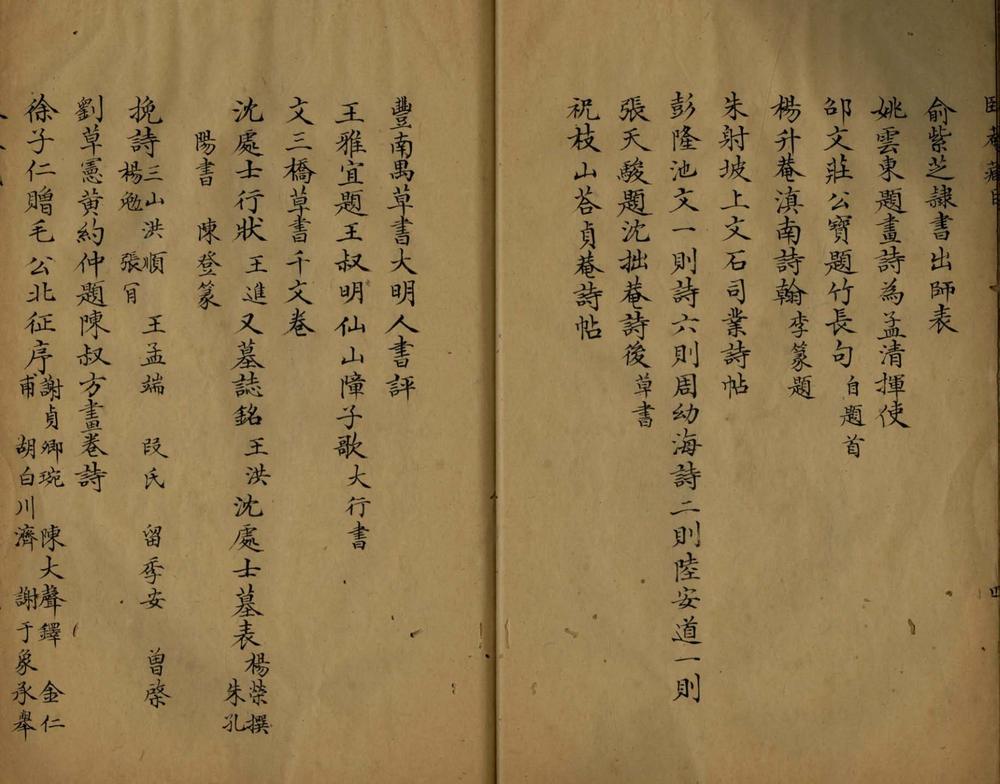 俞紫芝隷書出師表
姚雲東題畫詩為孟清揮使
邵文莊公寶題竹長句自題首
楊升菴滇南詩翰李篆題
朱射坡上文石司業詩帖
彭隆池文一則詩六則周幼海詩二則陸安道一則
張天駿題沈拙菴詩後草書
祝枝山荅貞菴詩帖
豐南禺草書大明人書評
王雅宜題王叔明仙山障子歌大行書
文三橋草書千文卷
沈處士行狀王進又墓誌銘王洪沈處士墓表楊榮撰朱孔
陽書 陳登篆
挽詩三山洪順 王孟端 段氏 留季安 曾棨
楊勉 張
劉草憲黄約仲題陳叔方畫卷詩
徐子仁贈毛公北征序謝貞卿琬 陳大聲鐸 金仁
甫 胡白川濟 謝于象承舉